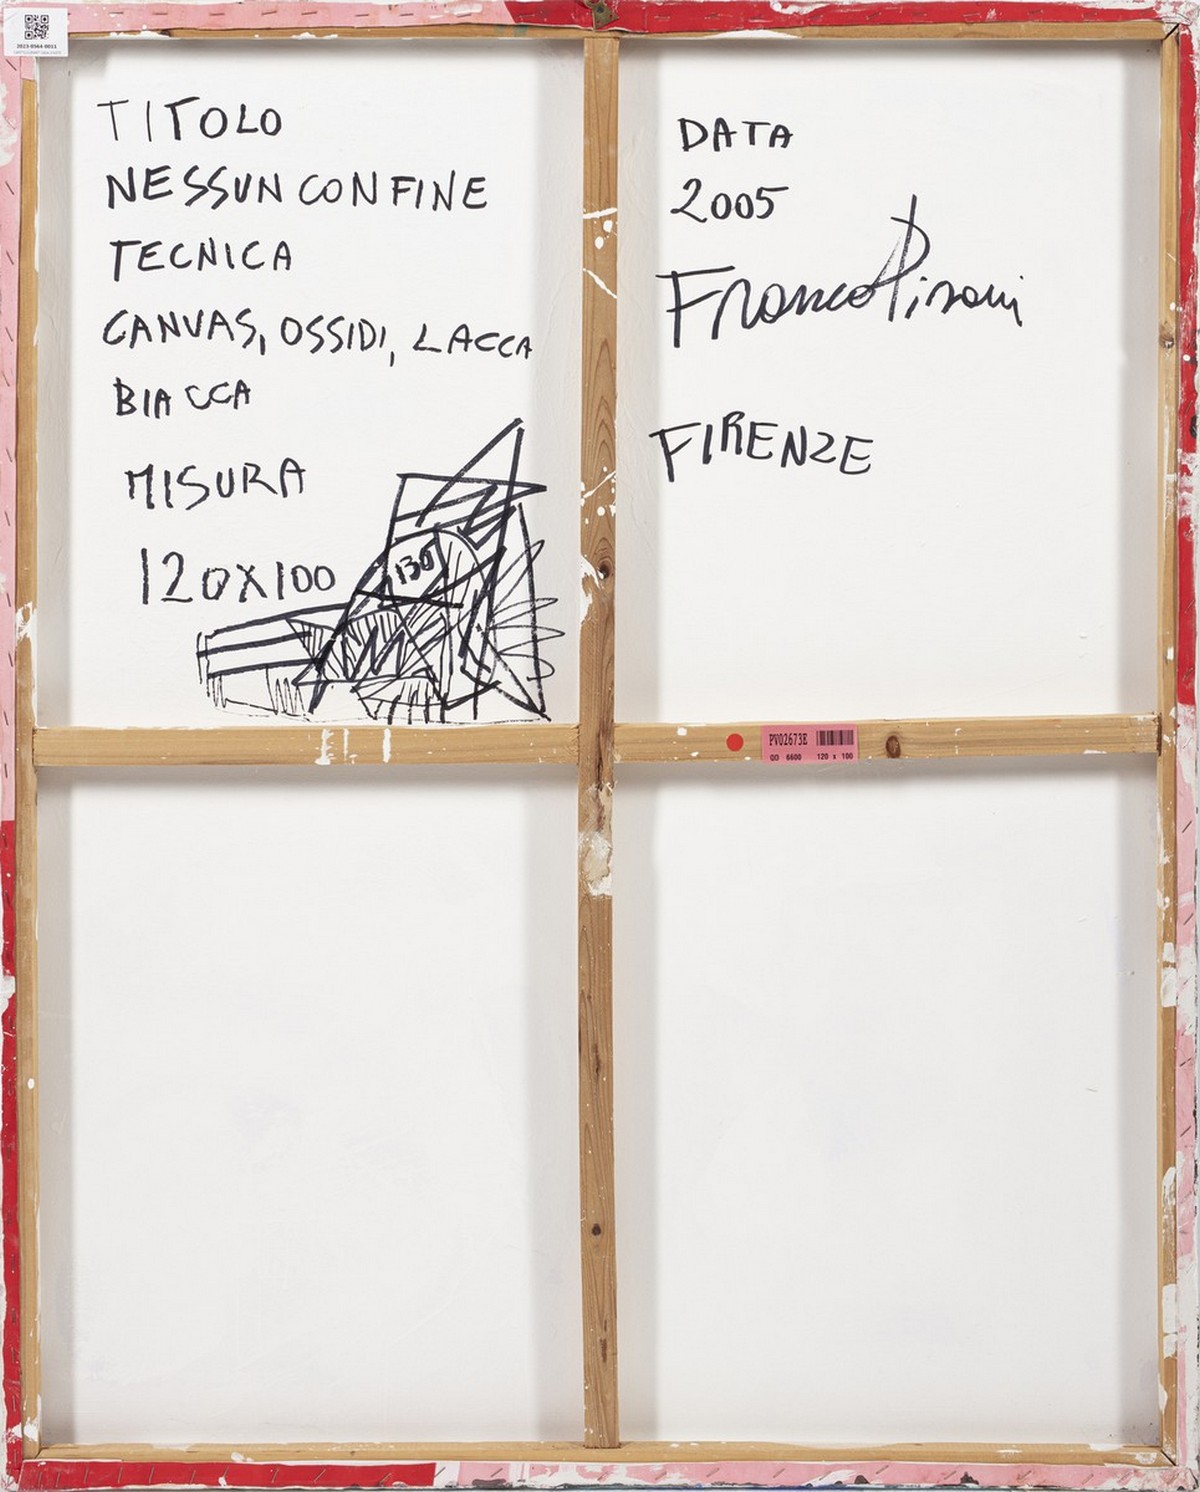 2023-0564-0011
TITOLO
NESSUN CONFINE
TECNICA
CANVAS, OSSIDI, LACCA
BIACCA
MISURA
120X100
130
DATA
2005
Franco Pisani
FIRENZE
PV02673E
QD 6600 120 x 100